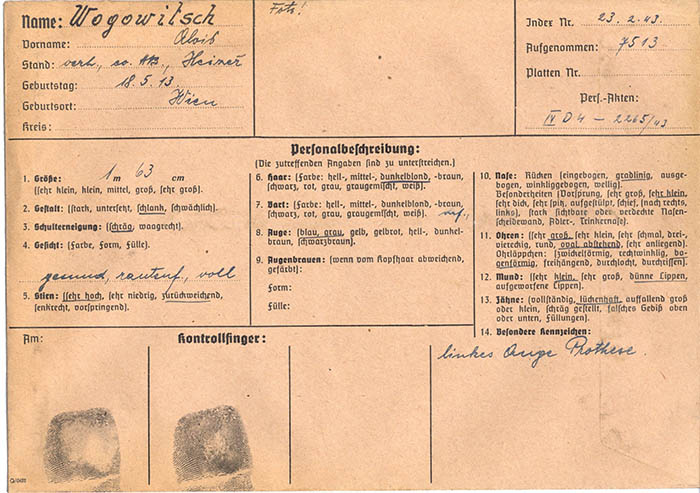 Name: Wogowitsch
Vorname: Alois
Stand: verh., so. Heizer
Geburtstag: 18.5.13.
Geburtsort: Wien
Kreis:
Foto!
Index Nr. 23.2.43.
Aufgenommen: 7513
Platten Nr.
Pers.-Akten:
IV D 4 – 2265/43
Personalbeschreibung:
(Die zutreffenden Angaben sind zu unterstreichen.)
1. Größe: 1 m 63 cm
(sehr klein, klein, mittel, groß, sehr groß).
2. Gestalt: (stark, untersetzt, schlank, schwächlich).
3. Schulterneigung: (schräg, waagrecht).
4. Gesicht: (Farbe, Form, Fülle).
gesund, voll
5. Stirn: (sehr hoch, sehr niedrig, zurückweichend,
senkrecht, vorspringend).
6. Haar: (Farbe: hell-, mittel-, dunkelblond, -braun,
schwarz, rot, grau, graugemischt, weiß).
7. Bart: (Farbe: hell-, mittel-, dunkelblond, -braun,
schwarz, rot, grau, graugemischt, weiß).
8. Auge: (blau, grau, gelb, gelbrot, hell-, dunkel-
braun, schwarzbraun).
9. Augenbrauen: (wenn vom Kopfhaar abweichend,
gefärbt):
Form:
Fülle:
10. Nase: Rücken (eingebogen, gradlinig, ausge-
bogen, winkliggebogen, wellig).
Besonderheiten (Vorsprung, sehr groß, sehr klein,
sehr dick, sehr spitz, aufgestülpt, schief, (nach rechts,
links), stark sichtbare oder verdeckte Nasen-
scheidewand, Adler-, Trinkernase).
11. Ohren: (sehr groß, sehr klein, sehr schmal, drei-
viereckig, rund, oval abstehend, sehr anliegend).
Ohrläppchen: (zwickelförmig, rechtwinklig, bo-
genförmig, freihängend, durchlocht, durchrissen).
12. Mund: (sehr klein, sehr groß, dünne Lippen,
aufgeworfene Lippen).
13. Zähne: (vollständig, lückenhaft, auffallend groß
oder klein, schräg gestellt, falsches Gebiß oben
oder unten, Füllungen).
14. Besondere Kennzeichen:
linkes Auge Prothese.
Am:
Kontrollfinger: